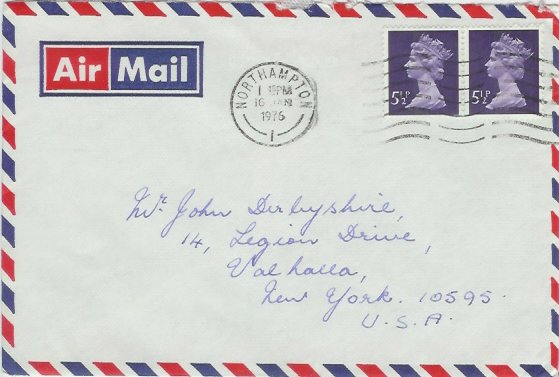 Air Mail
NORTHAMPTON
PM
1976
1
5½P 5½P
Mr. John Derbyshire,
14, Legion Drive,
Valhalla,
New York. 10595.
U.S.A.